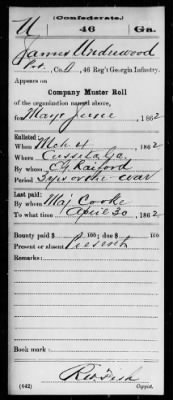 (Confederate.)
U 46 Ga.
James Underwood
Pvt., Co. D, 46 Reg't Georgia Infantry.
Appears on
Company Muster Roll
of the organization named above,
for May & June, 1862
Enlisted:
When Mch 4, 1862
Where Cusseta, Ga.
By whom C. G. Raiford
Period 3 yrs or the war
Last paid:
By whom Maj Cooke
To what time April 30, 1862
Bounty paid $ 100; due $ 100
Present or absent Present
Remarks:
Book mark:
(642) Copyist.